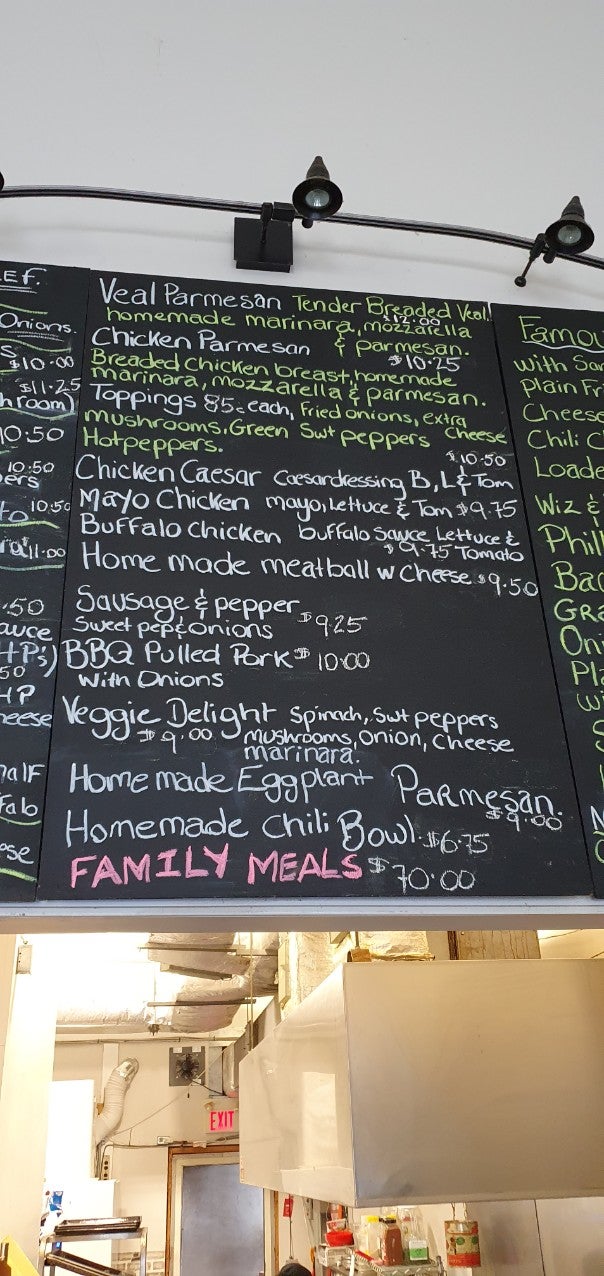 EF.
Onions.
$10.00
$11.25
hroom)
10.50
10.50
ers
to 10.50
11.00
.50
auce
HP's)
50
HP
heese
half
falo
ese
Veal Parmesan Tender Breaded Veal.
$12.00
homemade marinara, mozzarella
& parmesan.
Chicken Parmesan
$10.25
Breaded Chicken breast, homemade
marinara, mozzarella & parmesan.
Toppings 85¢ each, fried onions, extra
mushrooms. Green Swt peppers Cheese
Hotpeppers.
$10.50
Chicken Caesar Caesardressing B, L & Tom
Mayo Chicken mayo, Lettuce & Tom $9.75
Buffalo Chicken buffalo Sauce Lettuce &
$9.75 Tomato
Home made meatball w Cheese $9.50
Sausage & pepper
Sweet pep & onions $9.25
BBQ Pulled Pork $10.00
With Onions
Veggie Delight Spinach, Swt peppers
$9.00 mushrooms, onion, cheese
marinara.
Home made Eggplant Parmesan.
$9.00
Homemade Chili Bowl $6.75
FAMILY MEALS $70.00
Famou
with Sa
Plain Fr
Cheese
Chili C
Loade
Wiz &
Phill
Bac
Gra
Oni
Pla
wi
EXIT